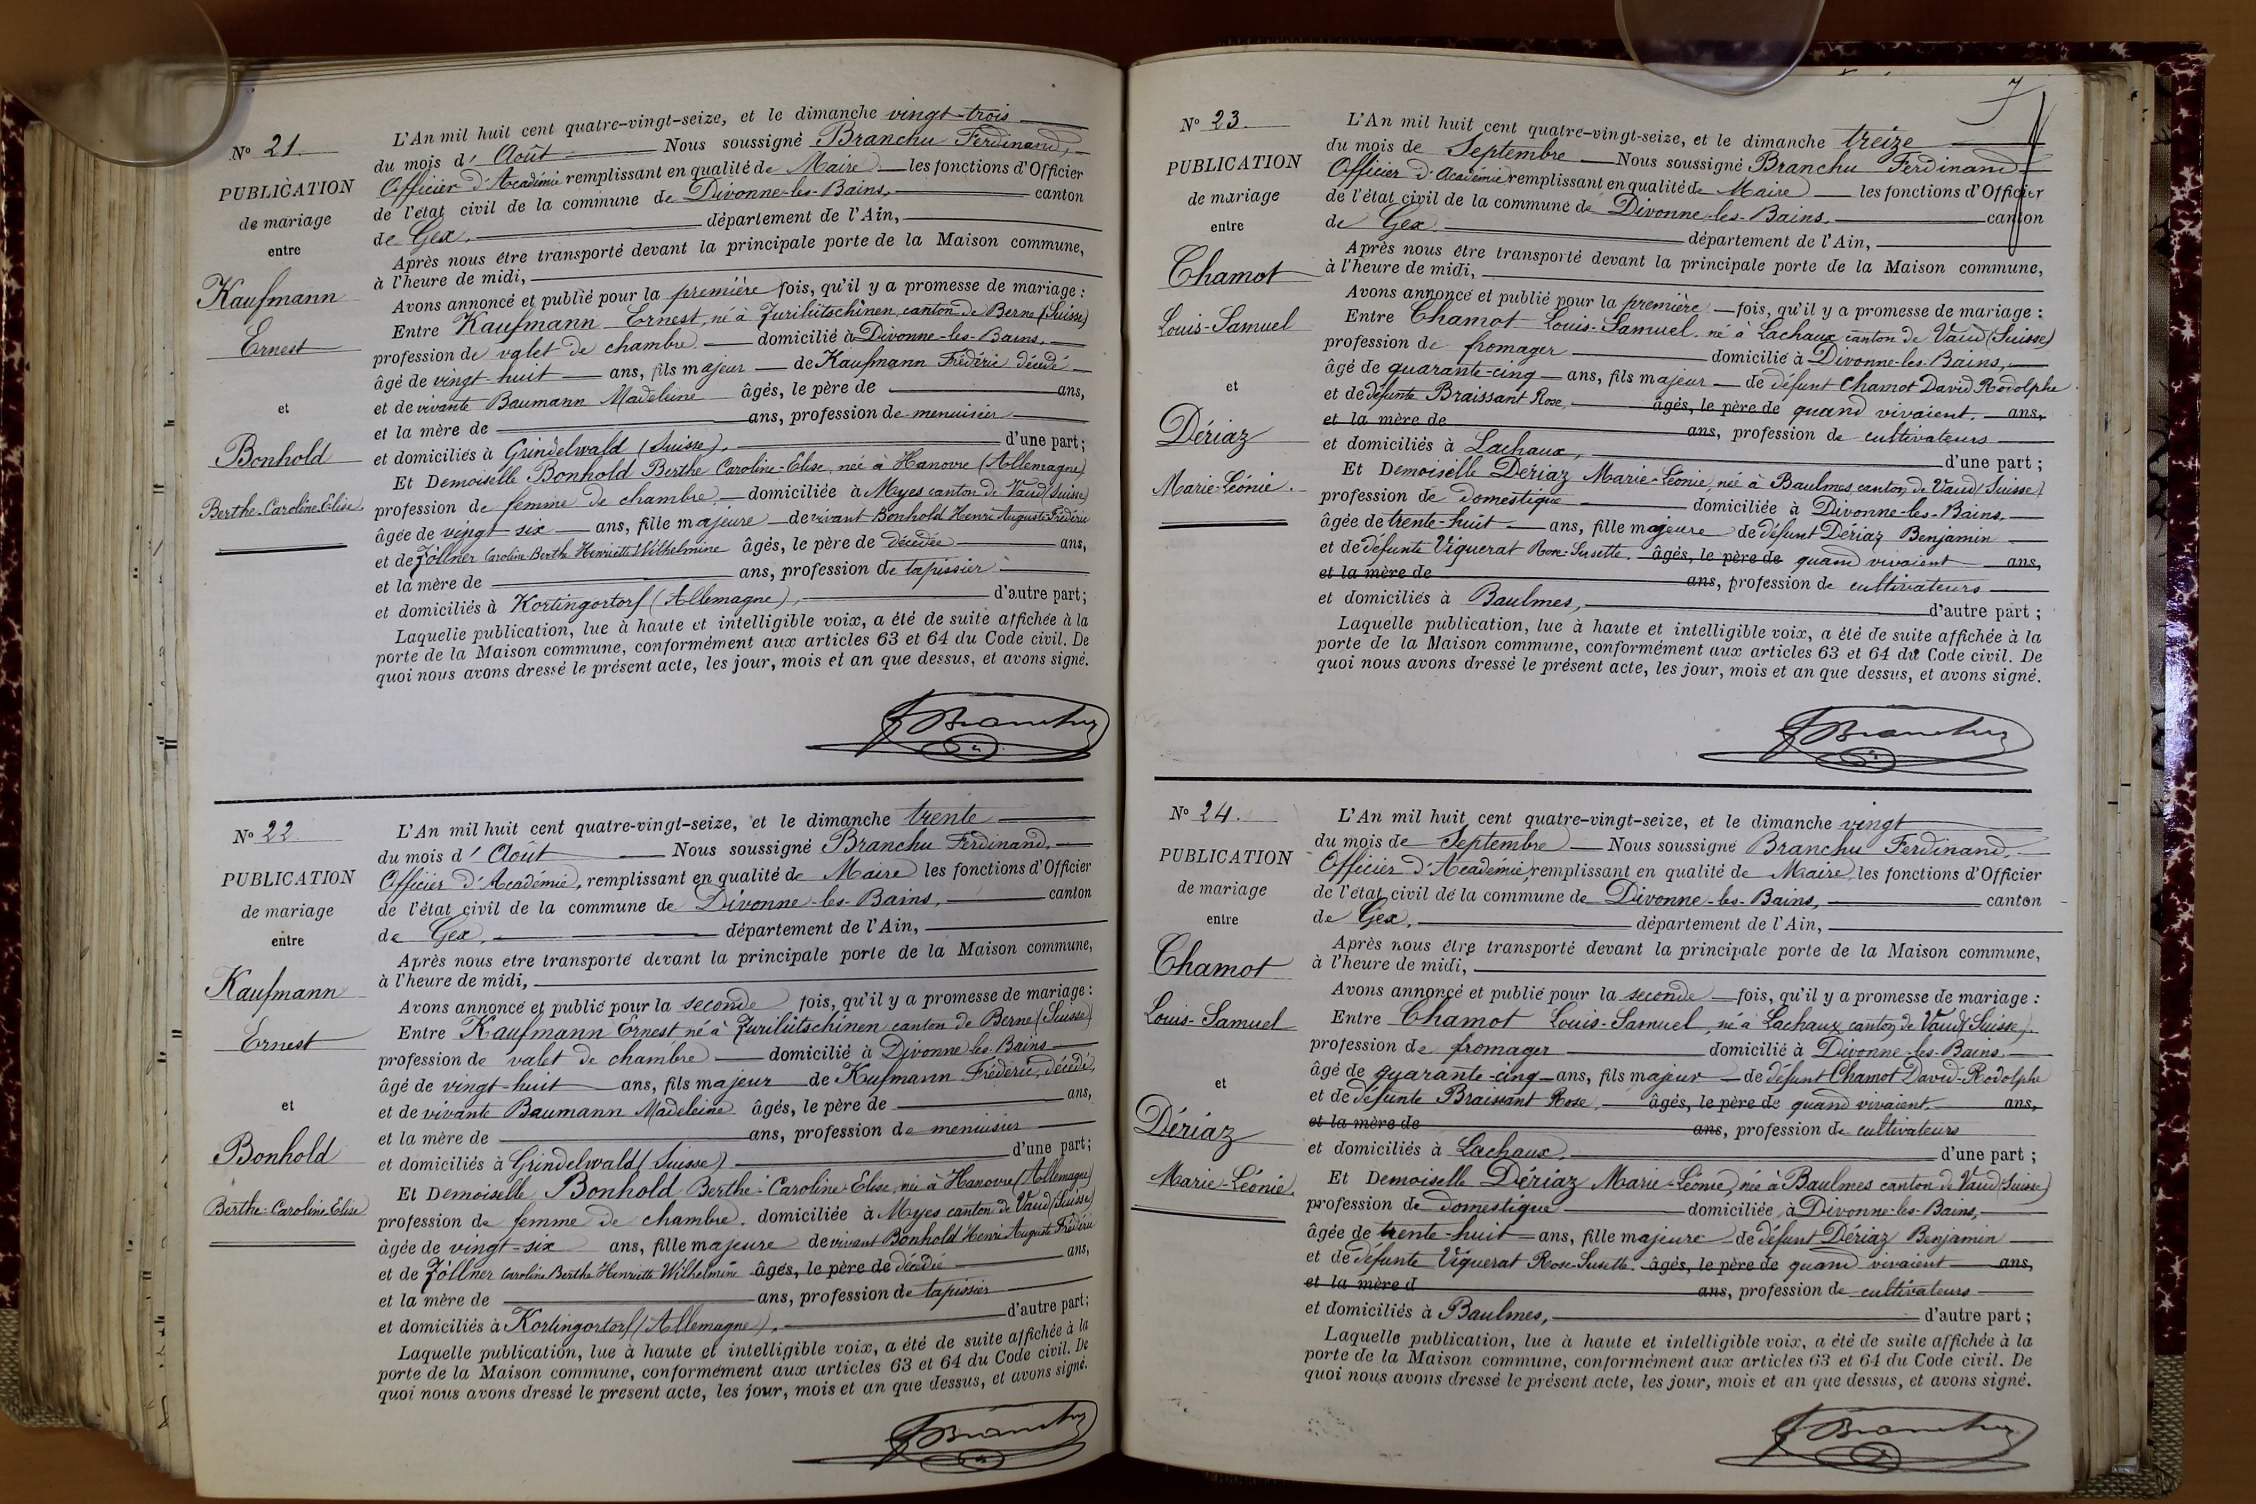 N° 21.
PUBLICATION
de mariage
entre
Kaufmann
Ernest
et
Bonhold
Berthe-Caroline-Elise.
L'An mil huit cent quatre-vingt-seize, et le dimanche vingt-trois
du mois d' Août Nous soussigné Branchu Ferdinand,
Officier d'Académie remplissant en qualité de Maire les fonctions d'Officier
de l'état civil de la commune de Divonne-les-Bains, canton
de Gex, département de l'Ain,
Après nous être transporté devant la principale porte de la Maison commune,
à l'heure de midi,
Avons annoncé et publié pour la première fois, qu'il y a promesse de mariage :
Entre Kaufmann Ernest, né à Zurilütschinen canton de Berne (Suisse)
profession de valet de chambre domicilié à Divonne-les-Bains,
âgé de vingt-huit ans, fils majeur de Kaufmann Frédéric décédé
et de vivante Baumann Madeleine âgés, le père de ans,
et la mère de ans, profession de menuisier
et domiciliés à Grindelwald (Suisse), d'une part;
Et Demoiselle Bonhold Berthe Caroline-Elise, née à Hanovre (Allemagne)
profession de femme de chambre domiciliée à Myes canton de Vaud (Suisse)
âgée de vingt-six ans, fille majeure de vivant Bonhold Henri Auguste Frédéric
et de Zöllner Caroline Berthe Henriette Wilhelmine âgés, le père de décédée ans,
et la mère de ans, profession de tapissier
et domiciliés à Kortingortorf (Allemagne), d'autre part;
Laquelle publication, lue à haute et intelligible voix, a été de suite affichée à la
porte de la Maison commune, conformément aux articles 63 et 64 du Code civil. De
quoi nous avons dressé le présent acte, les jour, mois et an que dessus, et avons signé.
F Branchu
N° 22
PUBLICATION
de mariage
entre
Kaufmann
Ernest
et
Bonhold
Berthe-Caroline-Elise
L'An mil huit cent quatre-vingt-seize, et le dimanche trente
du mois d' Août Nous soussigné Branchu Ferdinand,
Officier d'Académie, remplissant en qualité de Maire les fonctions d'Officier
de l'état civil de la commune de Divonne-les-Bains, canton
de Gex, département de l'Ain,
Après nous etre transporté devant la principale porte de la Maison commune,
à l'heure de midi,
Avons annoncé et publié pour la seconde fois, qu'il y a promesse de mariage :
Entre Kaufmann Ernest né à Zurilütschinen canton de Berne (Suisse)
profession de valet de chambre domicilié à Divonne-les-Bains
âgé de vingt-huit ans, fils majeur de Kufmann Frédéric, décédé,
et de vivante Baumann Madeleine âgés, le père de ans,
et la mère de ans, profession de menuisier
et domiciliés à Grindelwald (Suisse) d'une part;
Et Demoiselle Bonhold Berthe-Caroline-Elise, née à Hanovre (Allemagne)
profession de femme de chambre. domiciliée à Myes canton de Vaud (Suisse)
âgée de vingt-six ans, fille majeure de vivant Bonhold Henri Auguste Frédéric
et de Zöllner Caroline Berthe Henriette Wilhelmine âgés, le père de décédée ans,
et la mère de ans, profession de tapissier
et domiciliés à Kortingortorf (Allemagne), d'autre part;
Laquelle publication, lue à haute et intelligible voix, a été de suite affichée à la
porte de la Maison commune, conformément aux articles 63 et 64 du Code civil. De
quoi nous avons dressé le present acte, les jour, mois et an que dessus, et avons signé.
F Branchu
7
N° 23.
PUBLICATION
de mariage
entre
Chamot
Louis-Samuel
et
Dériaz
Marie-Léonie.
L'An mil huit cent quatre-vingt-seize, et le dimanche treize
du mois de Septembre Nous soussigné Branchu Ferdinand
Officier d'Académie remplissant en qualité de Maire les fonctions d'Officier
de l'état civil de la commune de Divonne-les-Bains, canton
de Gex. département de l'Ain,
Après nous être transporté devant la principale porte de la Maison commune,
à l'heure de midi,
Avons annoncé et publié pour la première fois, qu'il y a promesse de mariage :
Entre Chamot Louis-Samuel né à Lachaux canton de Vaud (Suisse)
profession de fromager domicilié à Divonne-les-Bains,
âgé de quarante-cinq ans, fils majeur de défunt Chamot David Rodolphe
et de défunte Braissant Rose, âgés, le père de quand vivaient. ans,
et la mère de ans, profession de cultivateurs
et domiciliés à Lachaux, d'une part ;
Et Demoiselle Dériaz Marie-Léonie, née à Baulmes canton de Vaud (Suisse)
profession de domestique domiciliée à Divonne-les-Bains,
âgée de trente-huit ans, fille majeure de défunt Dériaz Benjamin
et de défunte Viquerat Rose-Susette. âgés, le père de quand vivaient ans,
et la mère de ans, profession de cultivateurs
et domiciliés à Baulmes, d'autre part ;
Laquelle publication, lue à haute et intelligible voix, a été de suite affichée à la
porte de la Maison commune, conformément aux articles 63 et 64 du Code civil. De
quoi nous avons dressé le présent acte, les jour, mois et an que dessus, et avons signé.
F Branchu
N° 24.
PUBLICATION
de mariage
entre
Chamot
Louis-Samuel
et
Dériaz
Marie-Léonie.
L'An mil huit cent quatre-vingt-seize, et le dimanche vingt
du mois de Septembre Nous soussigné Branchu Ferdinand,
Officier d'Académie, remplissant en qualité de Maire les fonctions d'Officier
de l'état civil de la commune de Divonne-les-Bains, canton
de Gex, département de l'Ain,
Après nous être transporté devant la principale porte de la Maison commune,
à l'heure de midi,
Avons annoncé et publié pour la seconde fois, qu'il y a promesse de mariage :
Entre Chamot Louis-Samuel, né à Lachaux canton de Vaud (Suisse).
profession de fromager domicilié à Divonne-les-Bains,
âgé de quarante-cinq ans, fils majeur de défunt Chamot David-Rodolphe
et de défunte Braissant Rose, âgés, le père de quand vivaient. ans,
et la mère de ans, profession de cultivateurs
et domiciliés à Lachaux, d'une part ;
Et Demoiselle Dériaz Marie-Léonie, née à Baulmes canton de Vaud (Suisse)
profession de domestique domiciliée à Divonne-les-Bains,
âgée de trente-huit ans, fille majeure de défunt Dériaz Benjamin
et de défunte Viquerat Rose-Susette. âgés, le père de quand vivaient ans,
et la mère d ans, profession de cultivateurs
et domiciliés à Baulmes, d'autre part ;
Laquelle publication, lue à haute et intelligible voix, a été de suite affichée à la
porte de la Maison commune, conformément aux articles 63 et 64 du Code civil. De
quoi nous avons dressé le présent acte, les jour, mois et an que dessus, et avons signé.
F Branchu